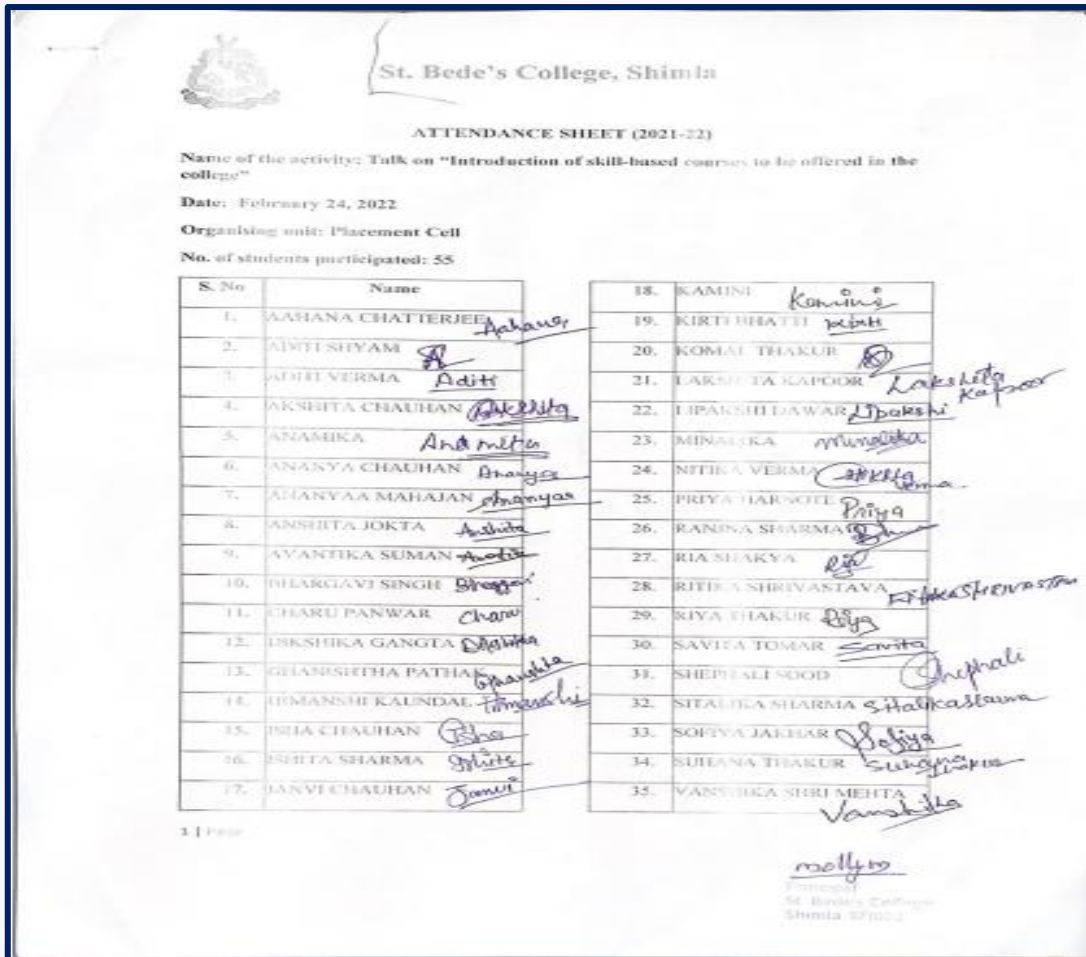 St. Bede's College, Shimla
ATTENDANCE SHEET (2021-22)
Name of the activity: Talk on "Introduction of skill-based courses to be offered in the
college"
Date: February 24, 2022
Organising unit: Placement Cell
No. of students participated: 55
S. No Name
1. AAHANA CHATTERJEE Aahana
2. ADITI SHYAM
3. ADITI VERMA Aditi
4. AKSHITA CHAUHAN Akshita
5. ANAMIKA Anamika
6. ANANYA CHAUHAN Ananya
7. ANANYAA MAHAJAN Ananyaa
8. ANSHITA JOKTA Anshita
9. AVANTIKA SUMAN
10. BHARGAVI SINGH
11. CHARU PANWAR Charu
12. DIKSHIKA GANGTA
13. GHANISHTHA PATHAK Ghanishtha
14. HIMANSHI KAUNDAL Himanshi
15. ISHA CHAUHAN Isha
16. ISHITA SHARMA Ishita
17. JANVI CHAUHAN Janvi
18. KAMINI Kamini
19. KIRTI BHATTI Kirti
20. KOMAL THAKUR
21. LAKSHITA KAPOOR Lakshita
Kapoor
22. LIPAKSHI DAWAR Lipakshi
23. MINALIKA Minalika
24. NITIKA VERMA Verma
25. PRIYA HARNOTE Priya
26. RANJNA SHARMA
27. RIA SHAKYA Ria
28. RITIKA SHRIVASTAVA
29. RIYA THAKUR Riya
30. SAVITA TOMAR Savita
31. SHEPHALI SOOD Shephali
32. SITALIKA SHARMA Sitalika Sharma
33. SOFIYA JAKHAR Sofiya
34. SUHANA THAKUR Suhana
Thakur
35. VANSHIKA SHRI MEHTA
Vanshika
1 | Page
Principal
St. Bede's College
Shimla